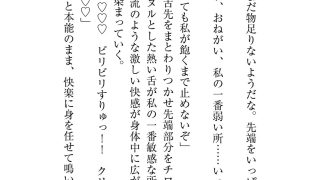 だ物足りないようだな。先端をいっぱ
、おねがい、私の一番弱い所……いっ
ても私が飽くまで止めないぞ」
舌先をまとわりつかせ先端部分をチロ
ヌルとした熱い舌が私の一番敏感な所
流のような激しい快感が身体中に広が
染まっていく。
♡♡♡　ビリビリすりゅっ！！　クリ
♡♡」
と本能のまま、快楽に身を任せて鳴い